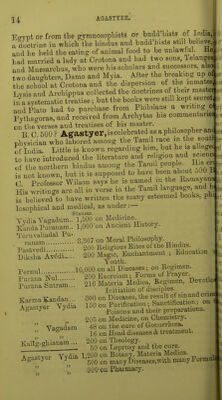 14 AGASTYER.
Egypt or from the gymnosophists or budd'hists of India,
a doctrine in which the hindus and budd'hists still believe,
and he held the eating of animal food to be unlawful. He
had married a lady at Crotona and had two sons, Telanges
and Mnesarchus, who were his scholars and successors, also
two daughters, Damo and Myia. After the breaking up of
the school at Crotona and the dispersion of the inmates,
Lysis and Archippus collected the doctrines of their master
in a systematic treatise; but the books were still kept secret,
and Plato had to purchase from Philolaus a writing of
Pythagoras, and received from Archytas his commentaries
on the verses and treatises of his master.
B. C. 500? Agastyer, is celebrated as a philosopher and
physician who labored among the Tamil race in the south
of India. Little is known regarding him, but he is alleged
to have introduced the literature and religion and science
of the northern hindus among the Tamul people. His era
is not known, but it is supposed to have been about 500 B.
C. Professor Wilson says he is named in the Ramayana.
His writings are all in verse in the Tamul language, and he
is believed to have written the many esteemed books, phi-
losophical and medical, as under:—
Stanzas.
Vydia Vagadum. 1,500 on Medicine.
Kanda Puranam. 1,000 on Ancient History.
Teruvalaudal Pu-
ranam 3,367 on Moral Philosophy.
Pasëvedi 200 Religious Rites of the Hindus.
Diksha Avédi 200 Magic, Enchantment; Education
Youth.
Pernul 10,000 on all Diseases; on Regimen.
Purana Nul 200 Exorcism; Forms of Prayer.
Purana Sutram... 216 Materia Medica, Regimen,
Initiation of disciples.
Karma Kandan... 300 on Diseases, the result of sin and
Agastyer Vydia 150 on Purification; Sanctification; on
Poisons and their preparations.
205 on Medicine, on Chemistry.
„ Vagadum 48 on the cure of Gonorrhœa.
„ 16 on Head diseases & treatment.
200 on Theology.
50 on Leprosy and the cure.
Agastyer Vydia 1,200 on Botany, Materia Medica.
„ „ 500 on many Diseases, with many
„ „ 200 on Pharmacy.